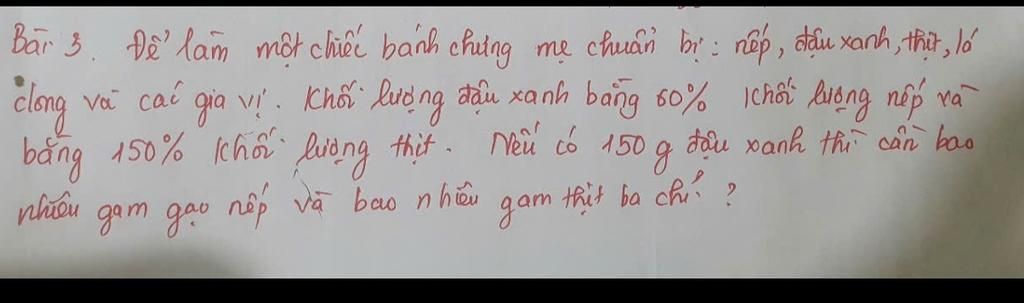 Bài 3. Để làm một chiếc bánh chưng mẹ chuẩn bị: nếp, đậu xanh, thịt, lá
dong và các gia vị. Khối lượng đậu xanh bằng 60% khối lượng nếp và
bằng 150% khối lượng thịt. Nếu có 150 g đậu xanh thì cần bao
nhiêu gam gạo nếp và bao nhiêu gam thịt ba chỉ?